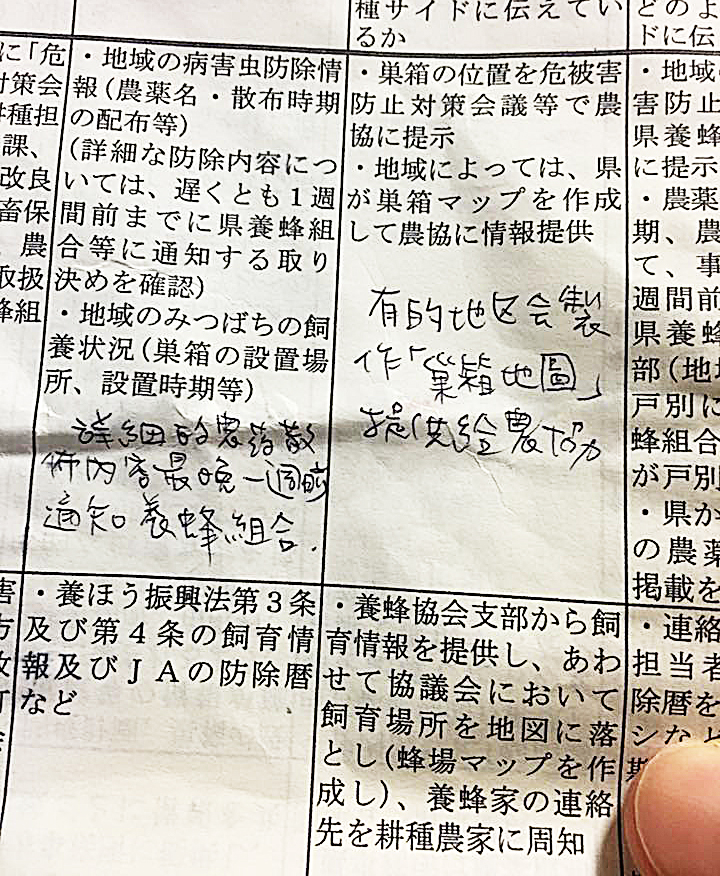 種サイドに伝えてい
るか
どのよ
ドに伝
に「危
対策会
耕種担
課、
改良
畜保
農
取扱
蜂組
・地域の病害虫防除情
報(農薬名・散布時期
の配布等)
(詳細な防除内容につ
いては、遅くとも1週
間前までに県養蜂組
合等に通知する取り
決めを確認)
・地域のみつばちの飼
養状況(巣箱の設置場
所、設置時期等)
詳細的農药散
佈內容最晚一週前
通知養蜂組合.
・巣箱の位置を危被害
防止対策会議等で農
協に提示
・地域によっては、県
が巣箱マップを作成
して農協に情報提供
有的地区会製
作「巢箱地圖」
提供给農協
・地域
害防止
県養蜂
に提示
・農薬
期、農
て、事
週間前
県養蜂
部(地域
戸別に
蜂組合
が戸別
・県か
の農薬
掲載を
害
方
改
・養ほう振興法第3条
及び第4条の飼育情
報及びJAの防除暦
など
・養蜂協会支部から飼
育情報を提供し、あわ
せて協議会において
飼育場所を地図に落
とし(蜂場マップを作
成し)、養蜂家の連絡
先を耕種農家に周知
・連絡
担当者
除暦を
シなど
期